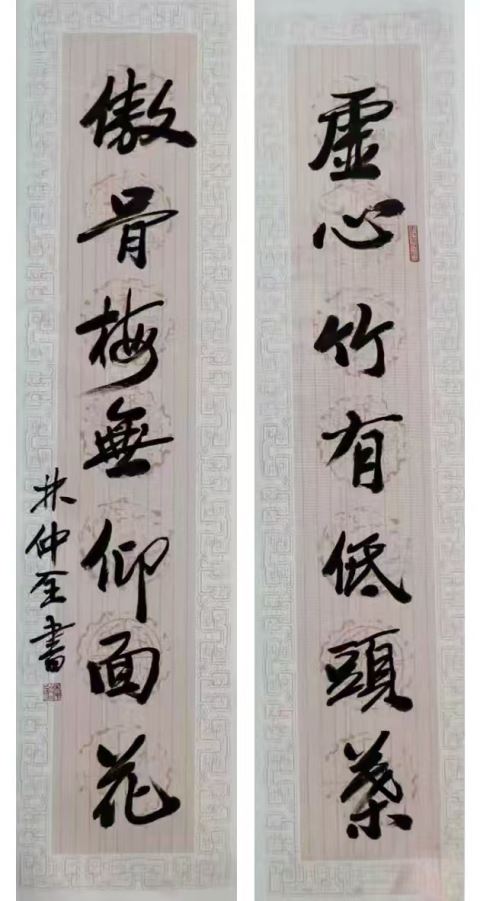 虛心竹有低頭葉
傲骨梅無仰面花
林仲至書